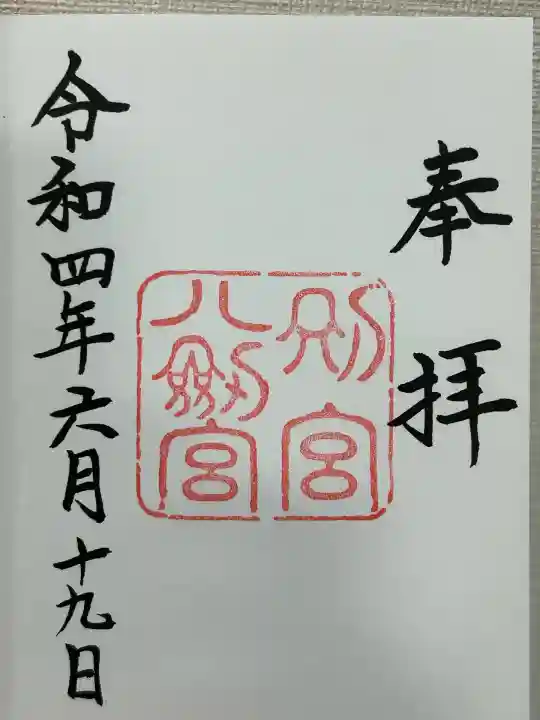 奉拝
別宮
八剣宮
令和四年六月十九日